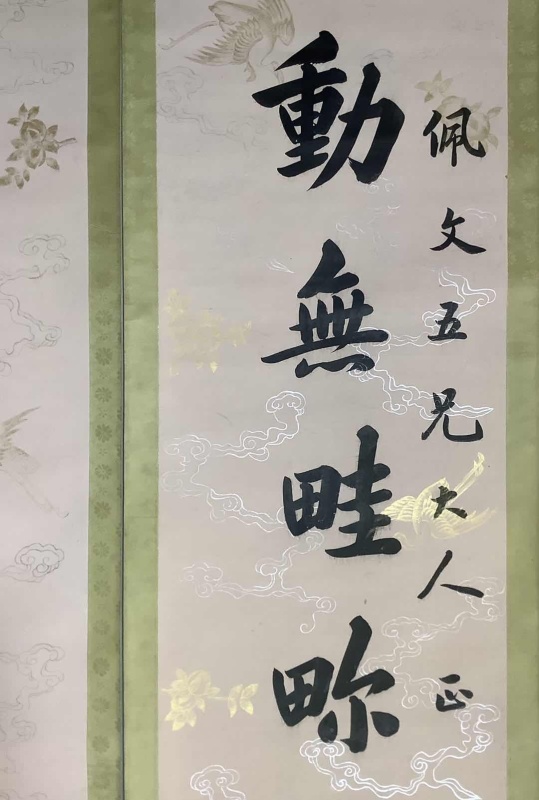 佩文五兄大人正
動無畦畛